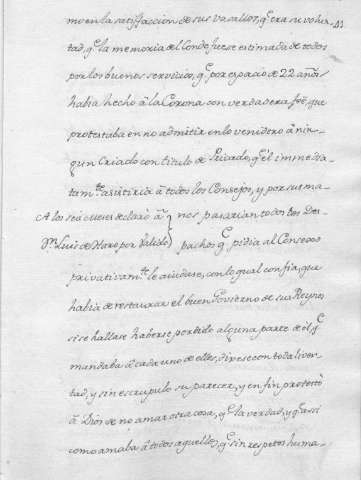 mo en la satisfaccion de sus vasallos, qe. era su volun- 41.
tad, qe. la memoria del Conde fuese estimada de todos
por los buenos servicios, qe. por espacio de 22 años
havia hecho â la Corona con verdadera fee, que
protestaba en no admitir en lo venidero â nin-
gun Criado con titulo de Privado, qe. êl immedia-
tamte. asistiria â todos los Consejos, y por sus ma-
A los seis meses declarò â nos pasarian todos los Des-
Dn. Luis de Haro por Valido pachos qe. pidia al Consexo
privativamte. le aiudase, con lo qual confia, que
havia de restaurar el buen Govierno de sus Reynos
si se hallase haberse perdido alguna parte de êl, qe.
mandaba â cada uno de ellos, dixese con toda liver-
tad, y sin escrupulo su parecer, y en fin protextò
â Dios de no amar otra cosa, qe. la verdad, y qe. assi
como amaba â todos aquellos, qe. sin respetos huma-